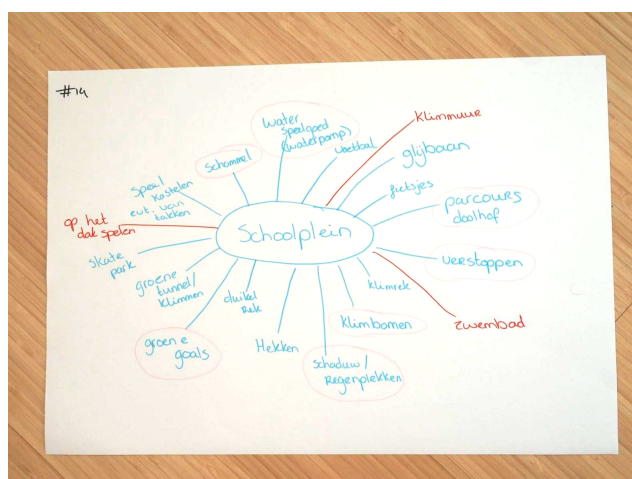 #14
Water
speelgoed
(waterpomp)
voetbal
Klimmuur
glijbaan
fietsjes
parcours
doolhof
verstoppen
zwembad
klimrek
klimbomen
schaduw/
Regenplekken
Hekken
duikel
Rek
groene
goals
groene
tunnel/
klimmen
skate
park
op het
dak spelen
speel
kastelen
evt. van
takken
schommel
Schoolplein